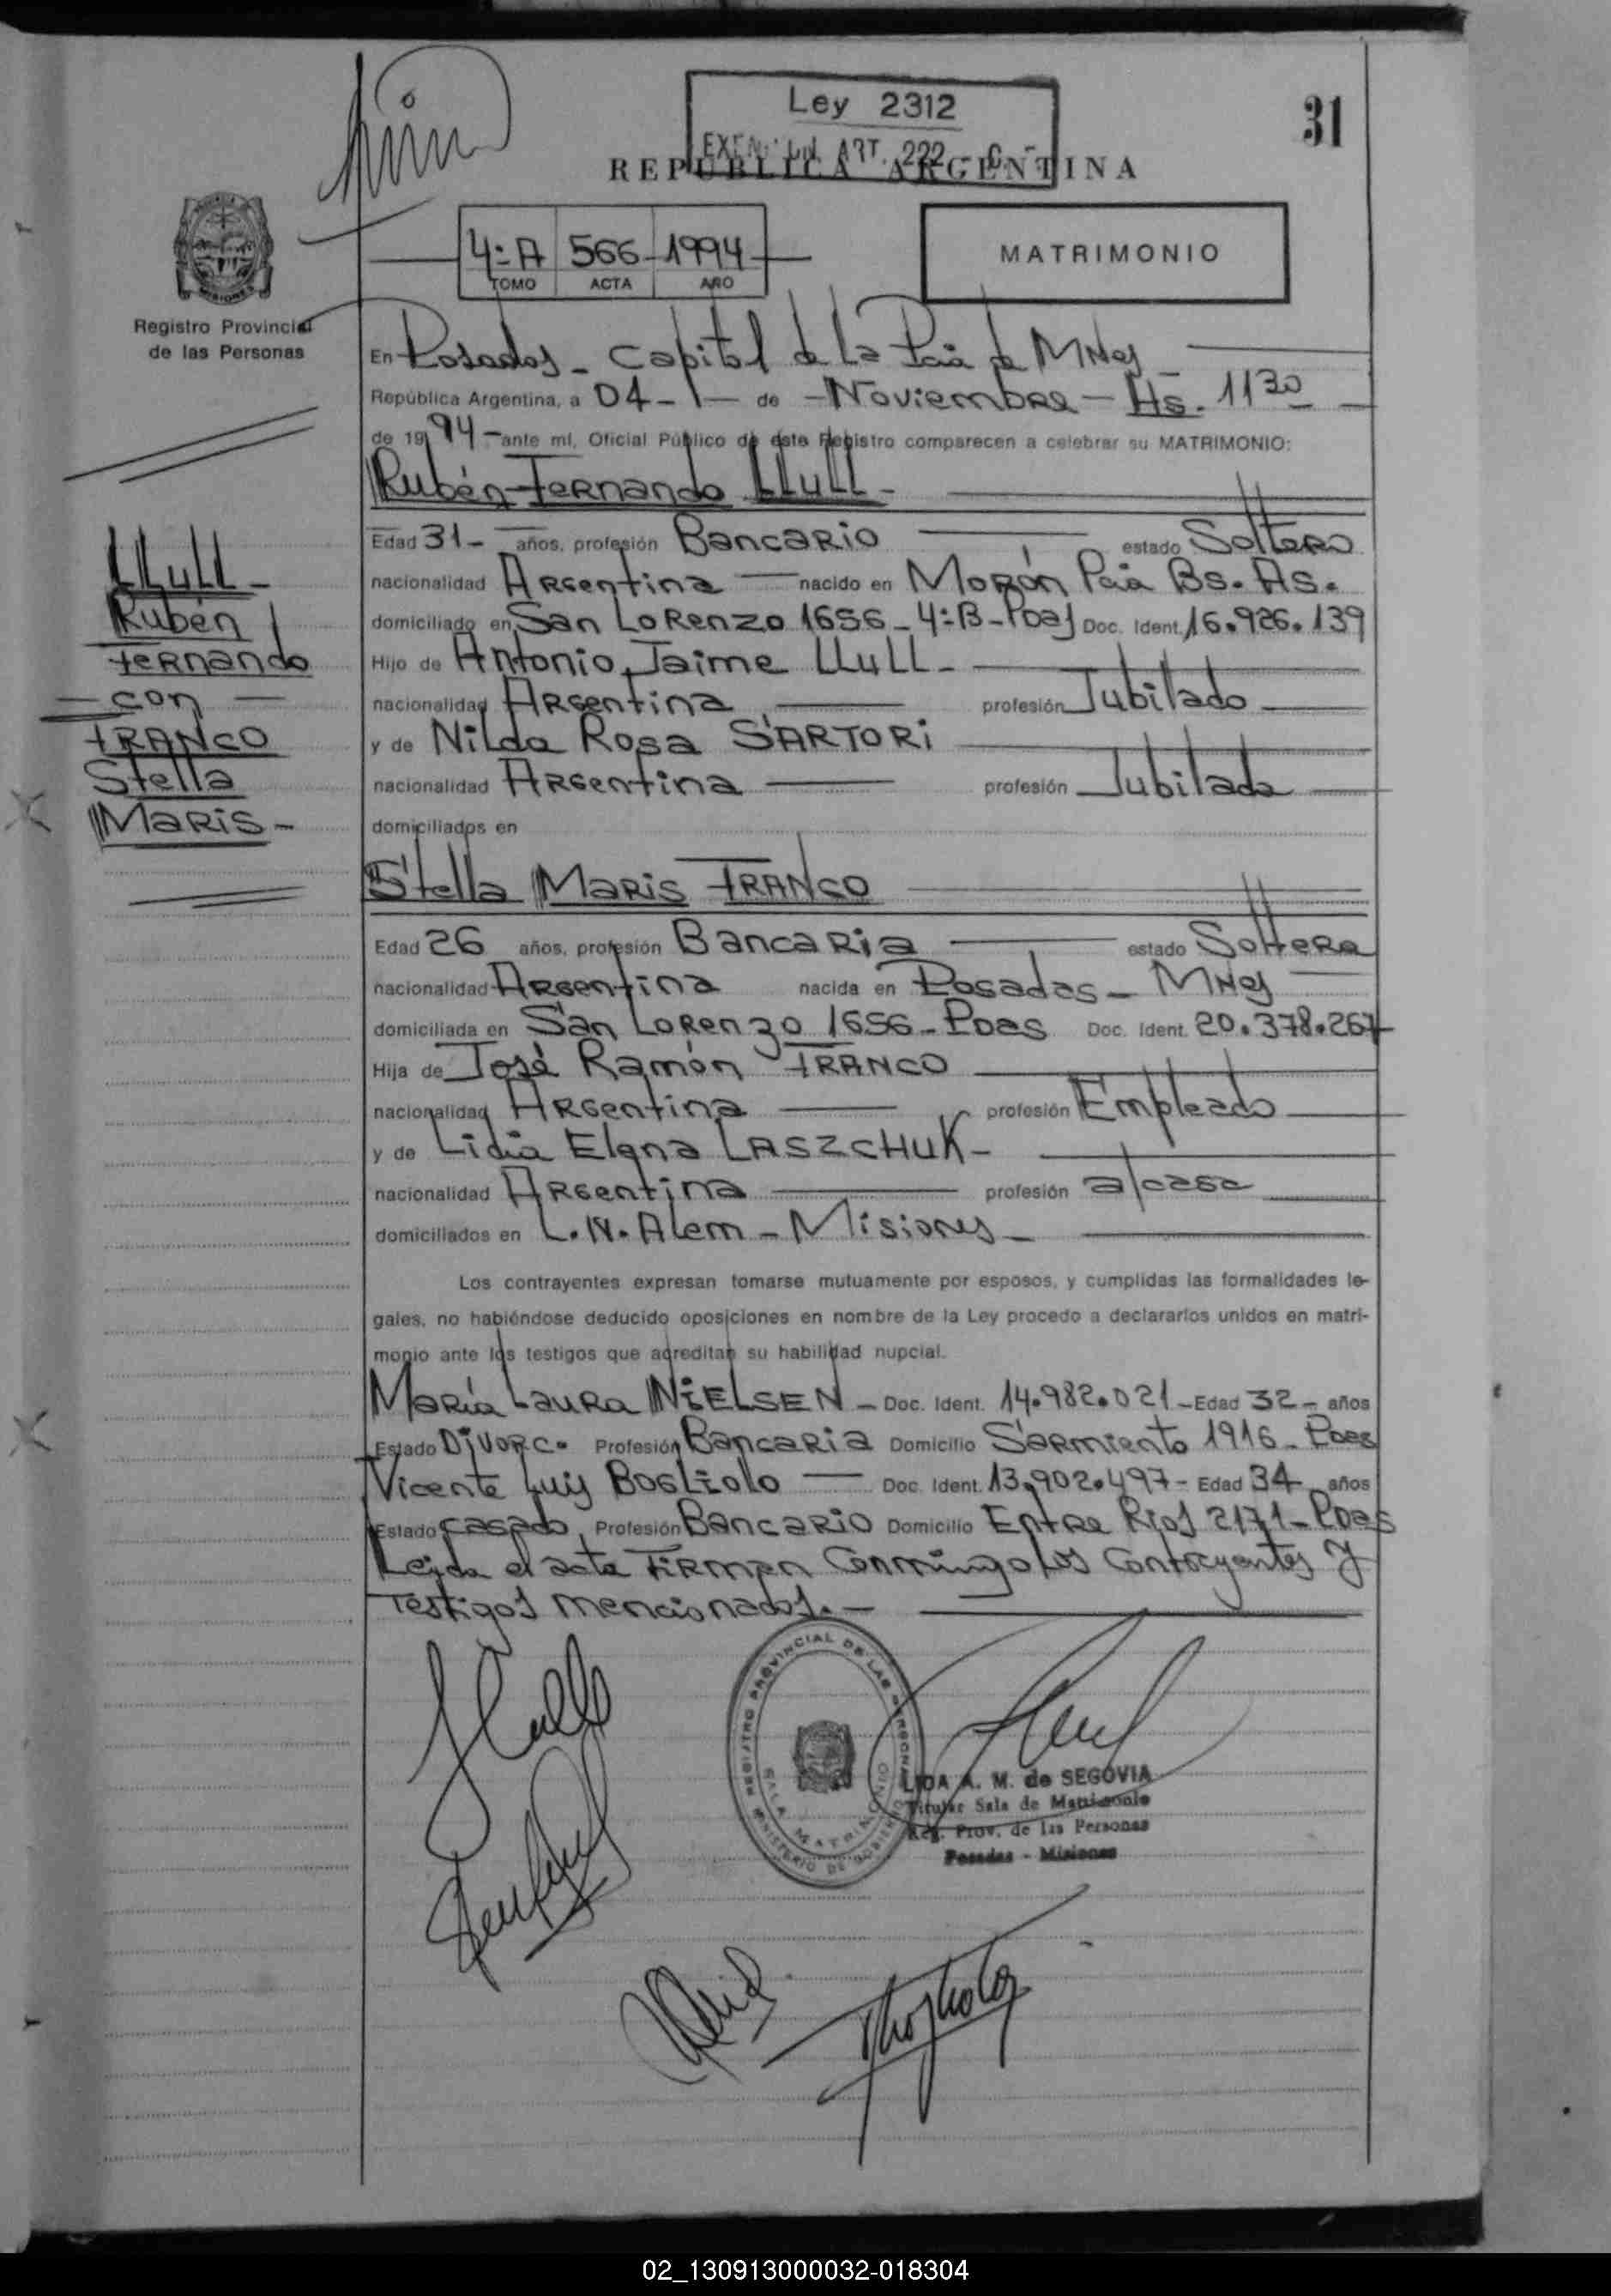 Ley 2312
EXENCION ART. 222 - C -
31
REPUBLICA ARGENTINA
4:A 566 1994
TOMO ACTA AÑO
MATRIMONIO
MISIONES
Registro Provincial
de las Personas
En Posadas - Capital de la Pcia de MNes
República Argentina, a 04 - de - Noviembre - Hs. 11 30
de 19 94 - ante mí, Oficial Público de este Registro comparecen a celebrar su MATRIMONIO:
Rubén Fernando LLULL -
Edad 31 - años, profesión Bancario estado Soltero
nacionalidad Argentina nacido en Morón Pcia Bs. As.
domiciliado en San Lorenzo 1656 - 4:B - Pdas Doc. Ident. 16.926.139
Hijo de Antonio Jaime LLULL -
nacionalidad Argentina profesión Jubilado
y de Nilda Rosa SARTORI
nacionalidad Argentina profesión Jubilada
domiciliados en
LLULL -
Rubén
Fernando
- con -
FRANCO
Stella
Maris -
Stella Maris FRANCO
Edad 26 años, profesión Bancaria estado Soltera
nacionalidad Argentina nacida en Posadas - MNes
domiciliada en San Lorenzo 1656 - Pdas Doc. Ident. 20.378.267
Hija de José Ramón FRANCO
nacionalidad Argentina profesión Empleado
y de Lidia Elena LASZCHUK -
nacionalidad Argentina profesión a/casa
domiciliados en L. N. Alem - Misiones -
Los contrayentes expresan tomarse mutuamente por esposos, y cumplidas las formalidades le-
gales, no habiéndose deducido oposiciones en nombre de la Ley procedo a declararlos unidos en matri-
monio ante los testigos que acreditan su habilidad nupcial.
María Laura NIELSEN - Doc. Ident. 14.982.021 - Edad 32 - años
Estado Divorc. Profesión Bancaria Domicilio Sarmiento 1916 - Pdas
Vicente Luis BOGLIOLO Doc. Ident. 13.902.497 - Edad 34 años
Estado Casado Profesión Bancario Domicilio Entre Ríos 2171 - Pdas
Leída el acta Firman Conmigo los Contrayentes y
Testigos mencionados. -
REGISTRO PROVINCIAL DE LAS PERSONAS
SALA MATRIMONIO
MINISTERIO DE GOBIERNO
LIDA A. M. de SEGOVIA
Titular Sala de Matrimonio
Reg. Prov. de las Personas
Posadas - Misiones
02_130913000032-018304